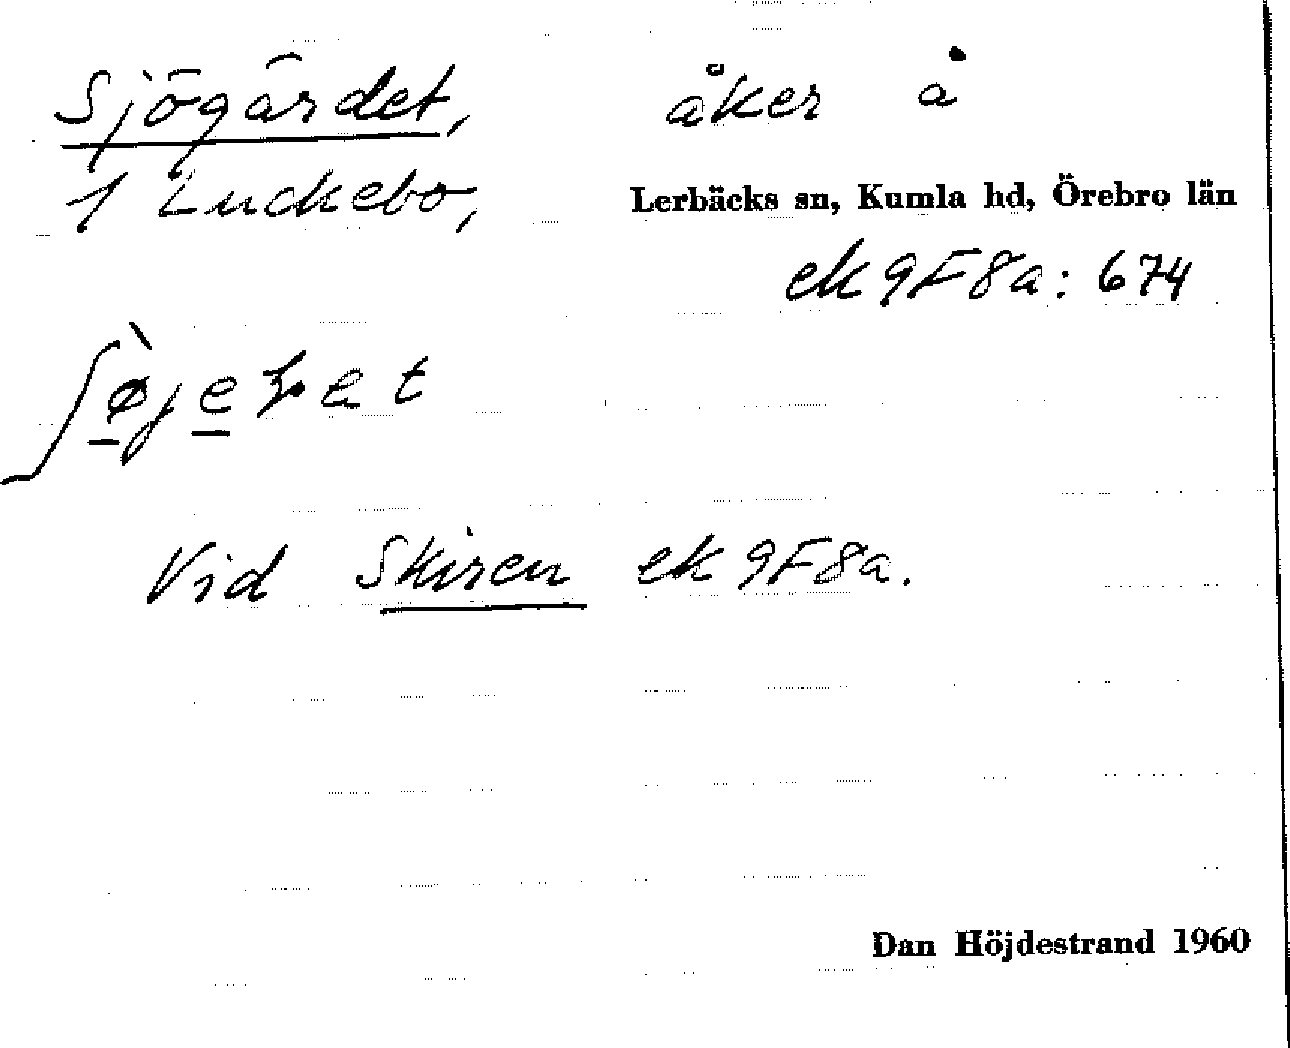 Sjögärdet, åker å
1 Luckebo, Lerbäcks sn, Kumla hd, Örebro län
ek 9F8a: 674
Vid Skiren ek 9F8a.
Dan Höjdestrand 1960